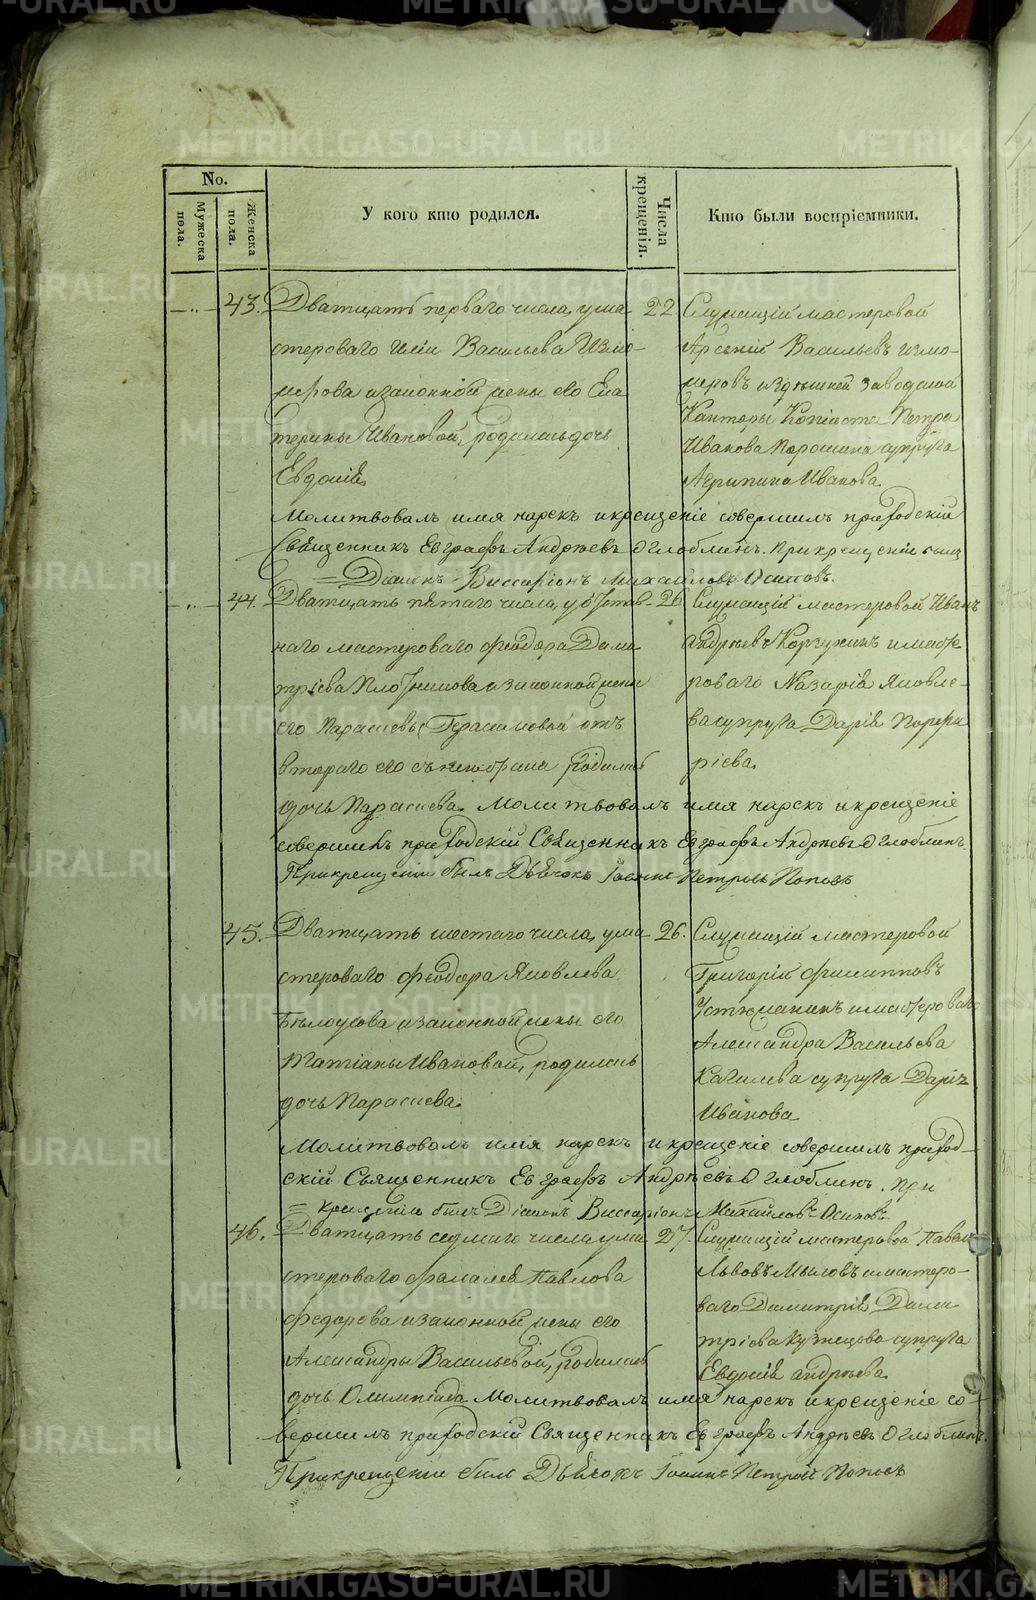 No.
Мужеска пола.
Женска пола.
У кого кто родился.
Числа крещенія.
Кто были воспріемники.
43. Дватцать перваго числа, у ма-
стероваго Иліи Васильева Измо-
мерова и законной жены его Ека
терины Ивановой, родилась дочь
Евдокія.
22 Служащій мастеровой
Арсеній Васильевъ Измо-
меровъ и здѣшней заводской
Канторы Копіиста Петра
Иванова Порошина супруга
Агрипина Иванова.
Молитвовалъ имя нарекъ и крещеніе совершилъ приходскій
Священникъ Евграфъ Андрѣевъ Оглоблинъ. При крещеніи былъ
Діаконъ Виссаріонъ Михайловъ Осиповъ.
44. Дватцать пятаго числа, у отстав-
наго мастероваго Феодора Дими
тріева Плотникова и законной жены
его Парасковьи Герасимовой отъ
втораго его съ нею брака родилась
дочь Парасковья. Молитвовалъ имя нарекъ и крещеніе
26 Служащій мастеровой Иванъ
Андрѣевъ Корчужинъ и масте
роваго Назарія Яковле-
ва супруга Дарія Порфи
ріева.
совершилъ приходскій Священникъ Евграфъ Андрѣевъ Оглоблинъ
При крещеніи былъ Дьячокъ Іоаннъ Петровъ Поповъ
45. Дватцать шестаго числа, у ма
стероваго Феодора Яковлева
Бѣлоусова и законной жены его
Татіаны Ивановой, родилась
дочь Парасковья.
26. Служащій мастеровой
Григорій Филипповъ
Устюжанинъ и мастероваго
Александра Васильева
супруга Дарія
Иванова.
Молитвовалъ имя нарекъ и крещеніе совершилъ приход-
скій Священникъ Евграфъ Андрѣевъ Оглоблинъ. При
крещеніи былъ Діаконъ Виссаріонъ Михайловъ Осиповъ
46. Дватцать седмаго числа у ма
стероваго Фалалея Павлова
Федорова и законной жены его
Александры Васильевой, родилась
27. Служащій мастеровой Павелъ
Львовъ и мастеро-
ваго Димитрія Дими
тріева Кузнецова супруга
Евдокія Андрѣева
дочь Олимпіада. Молитвовалъ имя нарекъ и крещеніе со-
вершилъ приходскій Священникъ Евграфъ Андрѣевъ Оглоблинъ.
При крещеніи былъ Дьячокъ Іоаннъ Петровъ Поповъ